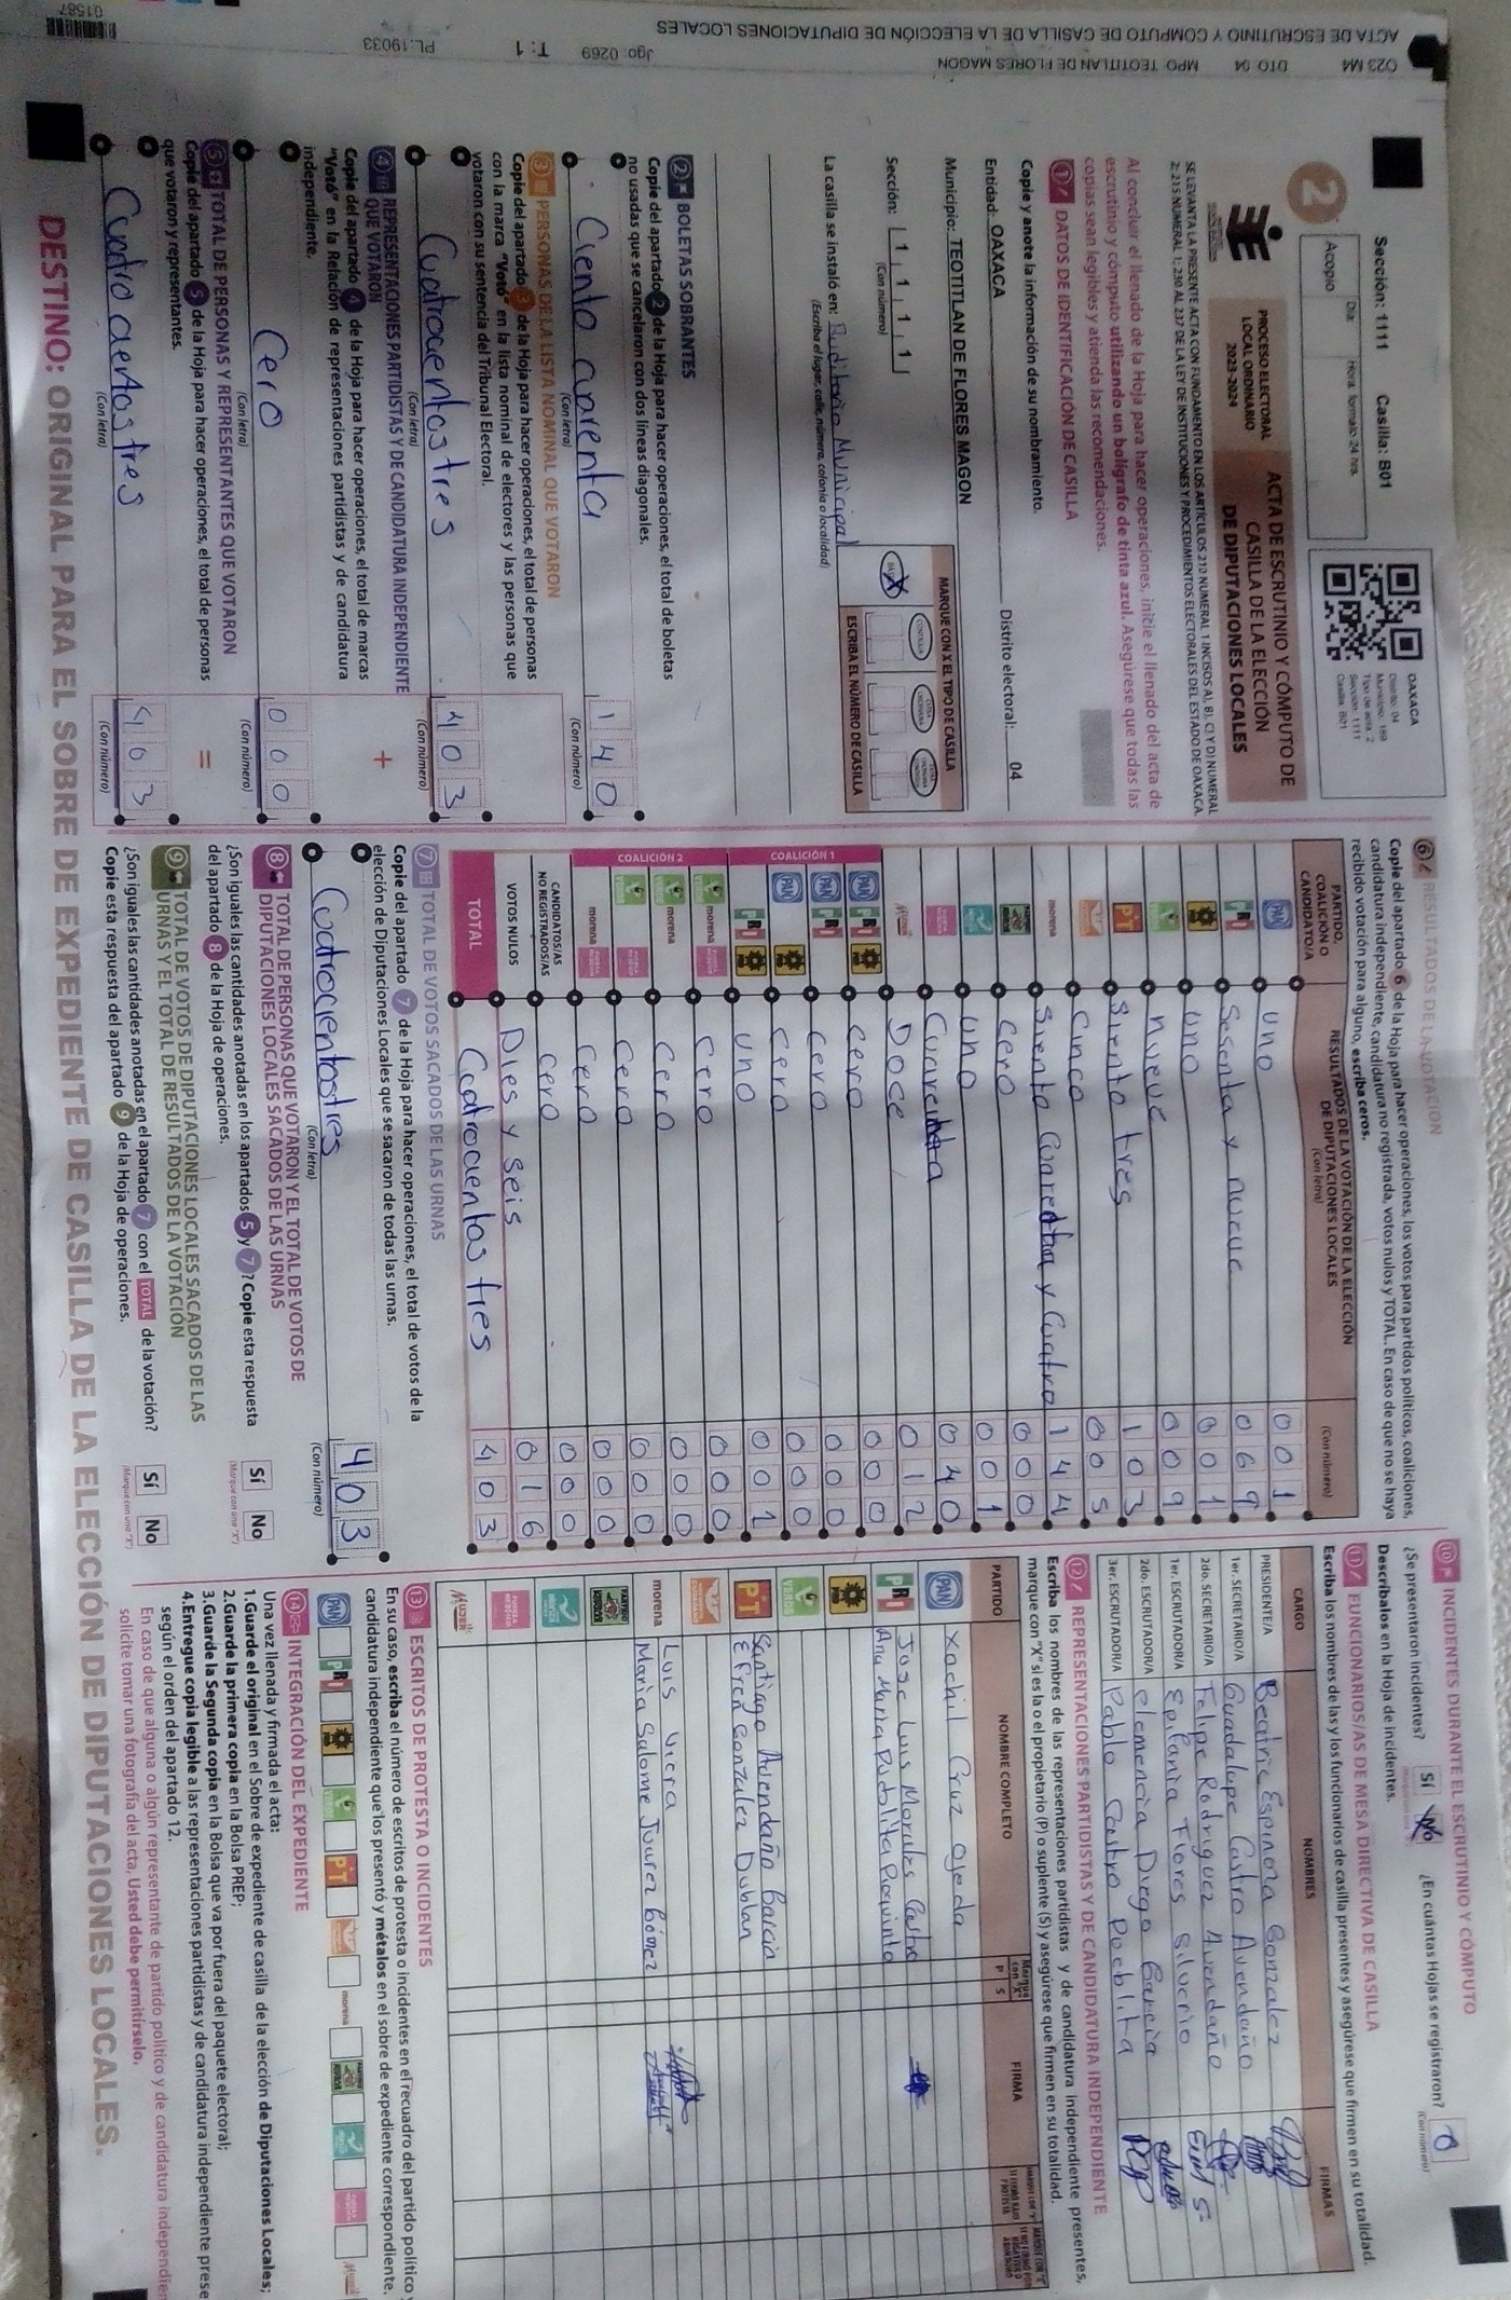 O23 M4 DTO: 04 MPO: TEOTITLAN DE FLORES MAGON Jgo: 0269 T: 1 PL.:19033 01587
ACTA DE ESCRUTINIO Y CÓMPUTO DE CASILLA DE LA ELECCIÓN DE DIPUTACIONES LOCALES
Sección: 1111 Casilla: B01
OAXACA
Distrito: 04
Tipo de acta: 2
Sección: 1111
Casilla: B01
Día: Hora: formato 24 hrs.
Acopio
2
PROCESO ELECTORAL
LOCAL ORDINARIO
2023-2024
ACTA DE ESCRUTINIO Y CÓMPUTO DE
CASILLA DE LA ELECCIÓN
DE DIPUTACIONES LOCALES
SE LEVANTA LA PRESENTE ACTA CON FUNDAMENTO EN LOS ARTÍCULOS 210 NUMERAL 1 INCISOS A), B), C) Y D) NUMERAL
2; 215 NUMERAL 1; 230 AL 237 DE LA LEY DE INSTITUCIONES Y PROCEDIMIENTOS ELECTORALES DEL ESTADO DE OAXACA.
Al concluir el llenado de la Hoja para hacer operaciones, inicie el llenado del acta de
escrutinio y cómputo utilizando un bolígrafo de tinta azul. Asegúrese que todas las
copias sean legibles y atienda las recomendaciones.
1 DATOS DE IDENTIFICACIÓN DE CASILLA
Copie y anote la información de su nombramiento.
Entidad: OAXACA Distrito electoral: 04
Municipio: TEOTITLAN DE FLORES MAGON
MARQUE CON X EL TIPO DE CASILLA
Sección: 1 1 1 1
(Con número)
ESCRIBA EL NÚMERO DE CASILLA
La casilla se instaló en: Auditorio Municipal
(Escriba el lugar, calle, número, colonia o localidad)
2 BOLETAS SOBRANTES
Copie del apartado 2 de la Hoja para hacer operaciones, el total de boletas
no usadas que se cancelaron con dos líneas diagonales.
Ciento cuarenta 1 4 0
(Con letra) (Con número)
3 PERSONAS DE LA LISTA NOMINAL QUE VOTARON
Copie del apartado 3 de la Hoja para hacer operaciones, el total de personas
con la marca "Votó" en la lista nominal de electores y las personas que
votaron con su sentencia del Tribunal Electoral.
Cuatrocientostres 4 0 3
(Con letra) (Con número)
4 REPRESENTACIONES PARTIDISTAS Y DE CANDIDATURA INDEPENDIENTE
QUE VOTARON +
Copie del apartado 4 de la Hoja para hacer operaciones, el total de marcas
"Votó" en la Relación de representaciones partidistas y de candidatura
independiente.
Cero 0 0 0
(Con letra) (Con número)
5 TOTAL DE PERSONAS Y REPRESENTANTES QUE VOTARON =
Copie del apartado 5 de la Hoja para hacer operaciones, el total de personas
que votaron y representantes.
Cuatro cientos tres 4 0 3
(Con letra) (Con número)
6 RESULTADOS DE LA VOTACIÓN
Copie del apartado 6 de la Hoja para hacer operaciones, los votos para partidos políticos, coaliciones,
candidatura independiente, candidatura no registrada, votos nulos y TOTAL. En caso de que no se haya
recibido votación para alguno, escriba ceros.
PARTIDO,
COALICIÓN O
CANDIDATO/A
RESULTADOS DE LA VOTACIÓN DE LA ELECCIÓN
DE DIPUTACIONES LOCALES
(Con letra) (Con número)
PAN uno 0 0 1
PRI Sesenta y nueve 0 6 9
PRD uno 0 0 1
VERDE nueve 0 0 9
PT Siento tres 1 0 3
Cinco 0 0 5
morena Siento Cuarenta y Cuatro 1 4 4
Cero 0 0 0
uno 0 0 1
Cuarenta 0 4 0
Mujer Doce 0 1 2
COALICIÓN 1
PAN PRI PRD cero 0 0 0
PAN PRI cero 0 0 0
PAN PRD cero 0 0 0
PRI PRD uno 0 0 1
COALICIÓN 2
VERDE morena cero 0 0 0
VERDE morena cero 0 0 0
VERDE cero 0 0 0
morena cero 0 0 0
CANDIDATOS/AS
NO REGISTRADOS/AS cero 0 0 0
VOTOS NULOS Dies y seis 0 1 6
TOTAL Cuatrocientos tres 4 0 3
7 TOTAL DE VOTOS SACADOS DE LAS URNAS
Copie del apartado 7 de la Hoja para hacer operaciones, el total de votos de la
elección de Diputaciones Locales que se sacaron de todas las urnas.
Cuatrocientostres 4 0 3
(Con letra) (Con número)
8 TOTAL DE PERSONAS QUE VOTARON Y EL TOTAL DE VOTOS DE
DIPUTACIONES LOCALES SACADOS DE LAS URNAS
¿Son iguales las cantidades anotadas en los apartados 5 y 7? Copie esta respuesta
del apartado 8 de la Hoja de operaciones.
Sí No
(Marque con una "X")
9 TOTAL DE VOTOS DE DIPUTACIONES LOCALES SACADOS DE LAS
URNAS Y EL TOTAL DE RESULTADOS DE LA VOTACIÓN
¿Son iguales las cantidades anotadas en el apartado 7 con el TOTAL de la votación?
Copie esta respuesta del apartado 9 de la Hoja de operaciones.
Sí No
(Marque con una "X")
10 INCIDENTES DURANTE EL ESCRUTINIO Y CÓMPUTO
¿Se presentaron incidentes? Sí No ¿En cuántas Hojas se registraron? 0
(Con número)
Descríbalos en la Hoja de incidentes.
11 FUNCIONARIOS/AS DE MESA DIRECTIVA DE CASILLA
Escriba los nombres de las y los funcionarios de casilla presentes y asegúrese que firmen en su totalidad.
CARGO NOMBRES FIRMAS
PRESIDENTE/A Beatriz Espinona Gonzalez
1er. SECRETARIO/A Guadalupe Castro Avendaño
2do. SECRETARIO/A Felipe Rodriguez Avendaño
1er. ESCRUTADOR/A Epifania Flores Silverio
2do. ESCRUTADOR/A Clemencia Diego Garcia
3er. ESCRUTADOR/A Pablo Castro Poeblita
12 REPRESENTACIONES PARTIDISTAS Y DE CANDIDATURA INDEPENDIENTE
Escriba los nombres de las representaciones partidistas y de candidatura independiente presentes,
marque con "X" si es la o el propietario (P) o suplente (S) y asegúrese que firmen en su totalidad.
PARTIDO NOMBRE COMPLETO P S FIRMA
PAN Xochil Cruz Ojeda
PRI Jose Luis Morales Castro
Ana Maria Pudblita Pioquinto
PRD
VERDE
PT Santiago Avendaño Garcia
Efren Gonzalez Dublan
morena Luis Viera
Maria Salome Juarez Gómez
Mujer
13 ESCRITOS DE PROTESTA O INCIDENTES
En su caso, escriba el número de escritos de protesta o incidentes en el recuadro del partido político
candidatura independiente que los presentó y métalos en el sobre de expediente correspondiente.
PAN PRI PRD VERDE PT morena
14 INTEGRACIÓN DEL EXPEDIENTE
Una vez llenada y firmada el acta:
1.Guarde el original en el Sobre de expediente de casilla de la elección de Diputaciones Locales;
2.Guarde la primera copia en la Bolsa PREP;
3.Guarde la Segunda copia en la Bolsa que va por fuera del paquete electoral;
4.Entregue copia legible a las representaciones partidistas y de candidatura independiente prese
según el orden del apartado 12.
En caso de que alguna o algún representante de partido político y de candidatura independien
solicite tomar una fotografía del acta, Usted debe permitírselo.
DESTINO: ORIGINAL PARA EL SOBRE DE EXPEDIENTE DE CASILLA DE LA ELECCIÓN DE DIPUTACIONES LOCALES.